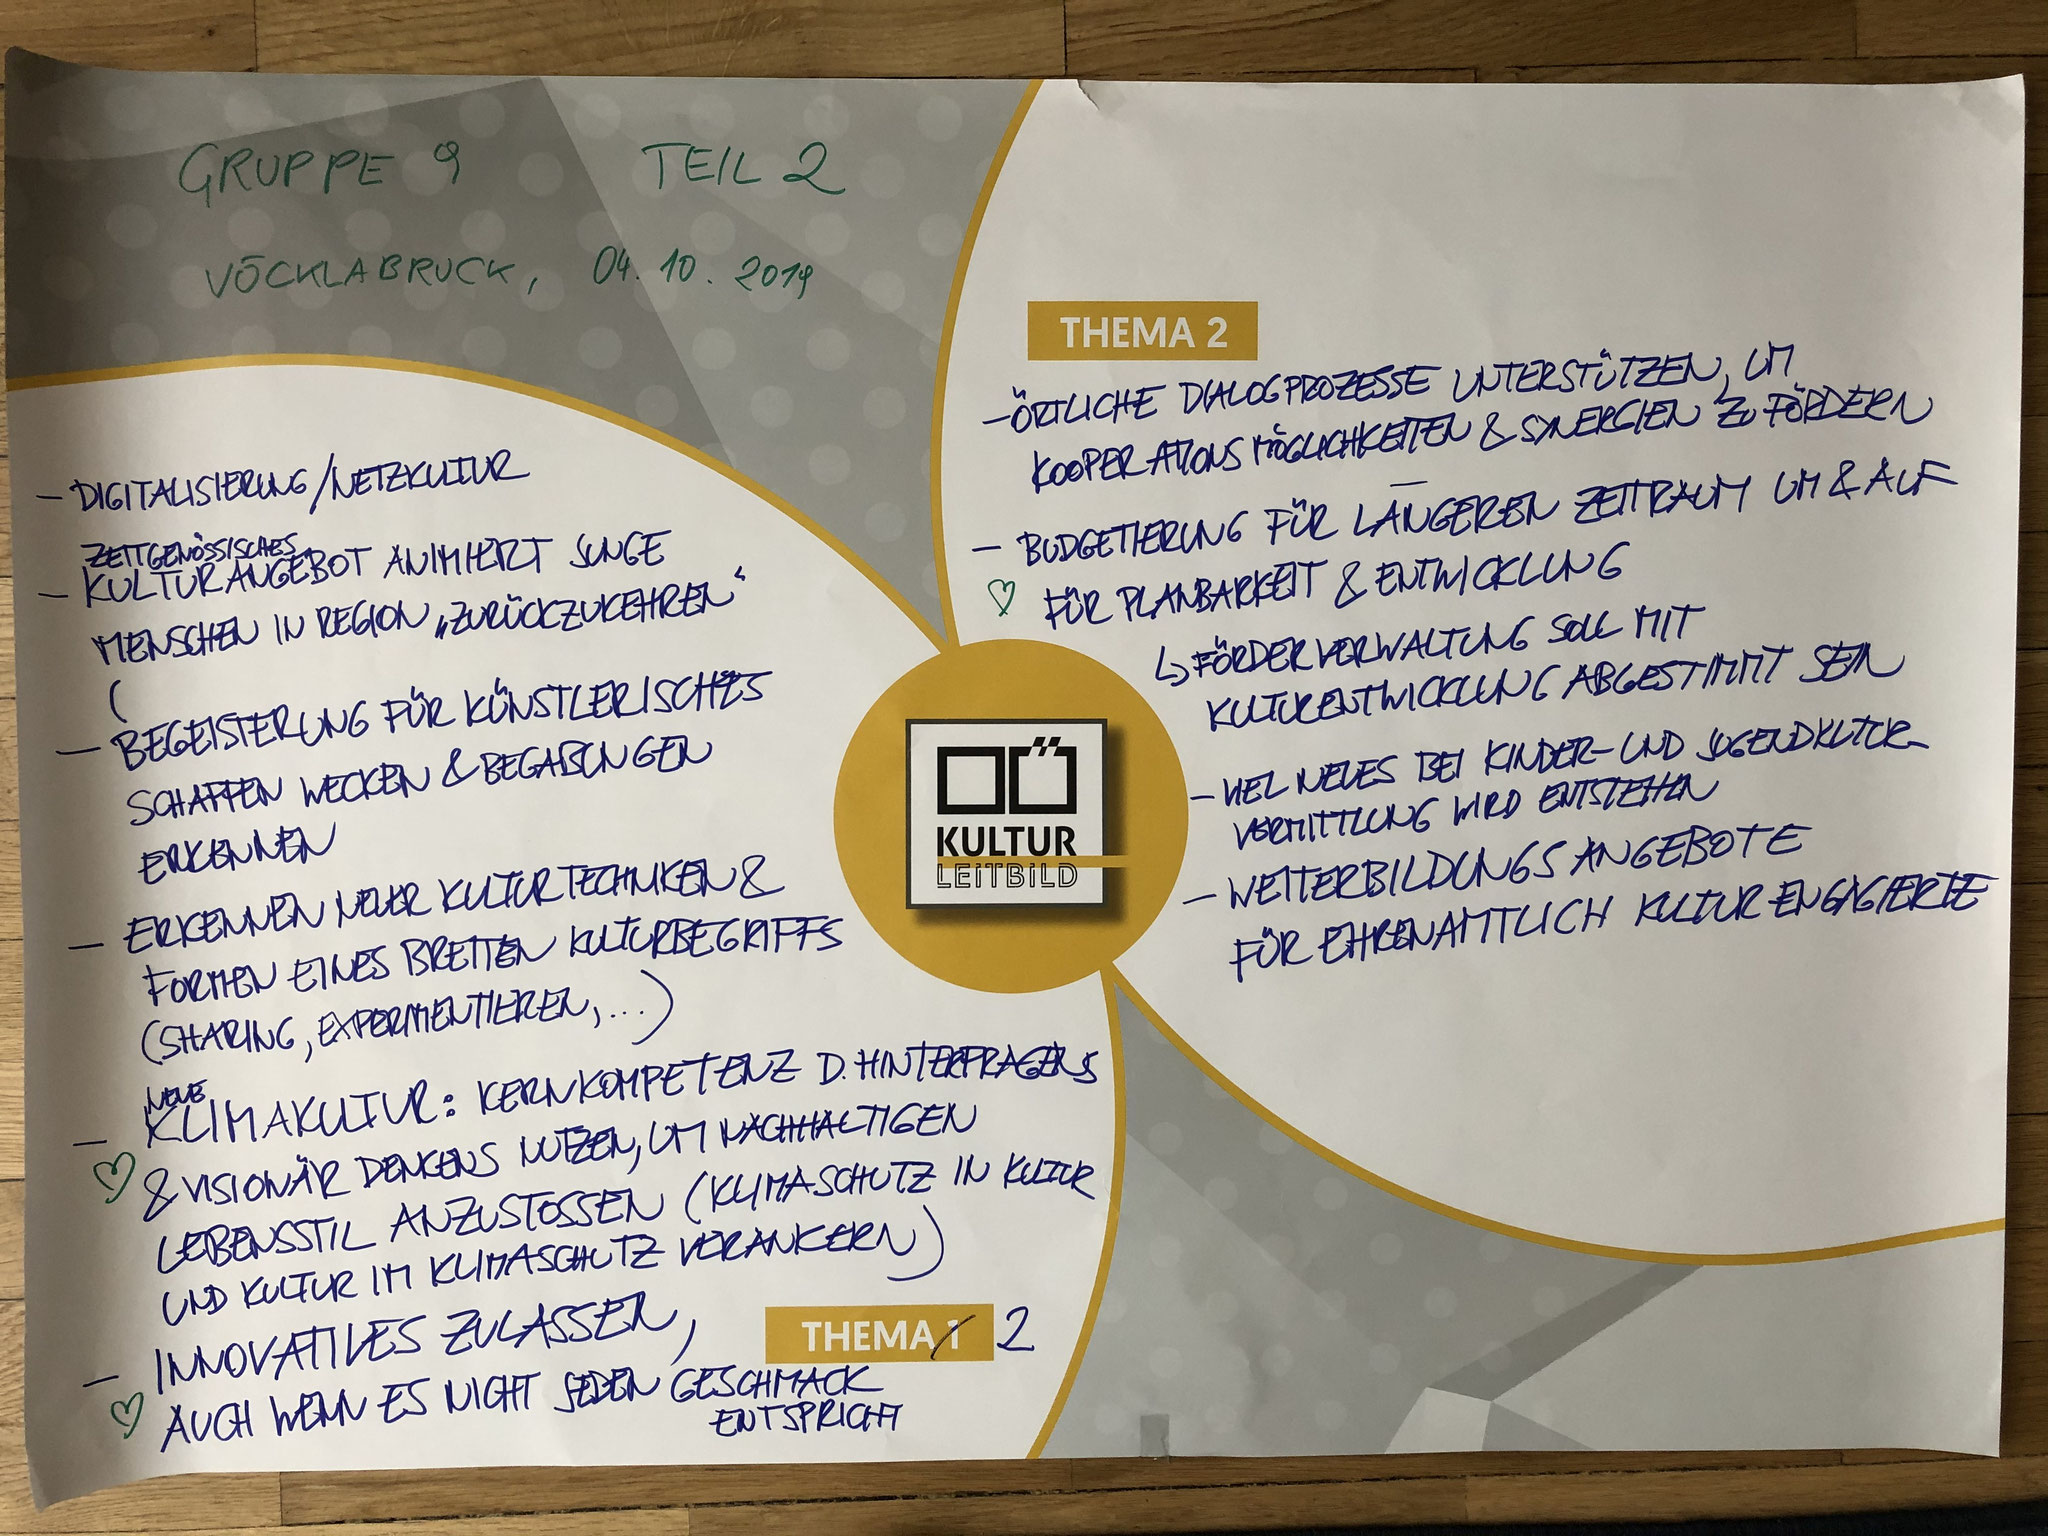 GRUPPE 9 TEIL 2
VÖCKLABRUCK, 04.10.2019
- DIGITALISIERUNG/NETZKULTUR
ZEITGENÖSSISCHES
- KULTURANGEBOT ANIMIERT JUNGE
MENSCHEN IN REGION „ZURÜCKZUKEHREN“
(
- BEGEISTERUNG FÜR KÜNSTLERISCHES
SCHAFFEN WECKEN & BEGABUNGEN
ERKENNEN
- ERKENNEN NEUER KULTURTECHNIKEN &
FORMEN EINES BREITEN KULTURBEGRIFFS
(SHARING, EXPERIMENTIEREN, ...)
NEUE
- KLIMAKULTUR: KERNKOMPETENZ D. HINTERFRAGENS
♡ & VISIONÄR DENKENS NUTZEN, UM NACHHALTIGEN
LEBENSSTIL ANZUSTOSSEN (KLIMASCHUTZ IN KULTUR
UND KULTUR IM KLIMASCHUTZ VERANKERN)
- INNOVATIVES ZULASSEN,
♡ AUCH WENN ES NICHT JEDEN GESCHMACK
ENTSPRICHT
THEMA 1 2
OÖ
KULTUR
LEiTBiLD
THEMA 2
- ÖRTLICHE DIALOGPROZESSE UNTERSTÜTZEN, UM
KOOPERATIONSMÖGLICHKEITEN & SYNERGIEN ZU FÖRDERN
- BUDGETIERUNG FÜR LÄNGEREN ZEITRAUM UM & AUF
♡ FÜR PLANBARKEIT & ENTWICKLUNG
↳ FÖRDERVERWALTUNG SOLL MIT
KULTURENTWICKLUNG ABGESTIMMT SEIN
- VIEL NEUES BEI KINDER- UND JUGENDKULTUR-
VERMITTLUNG WIRD ENTSTEHEN
- WEITERBILDUNGSANGEBOTE
FÜR EHRENAMTLICH KULTURENGAGIERTE